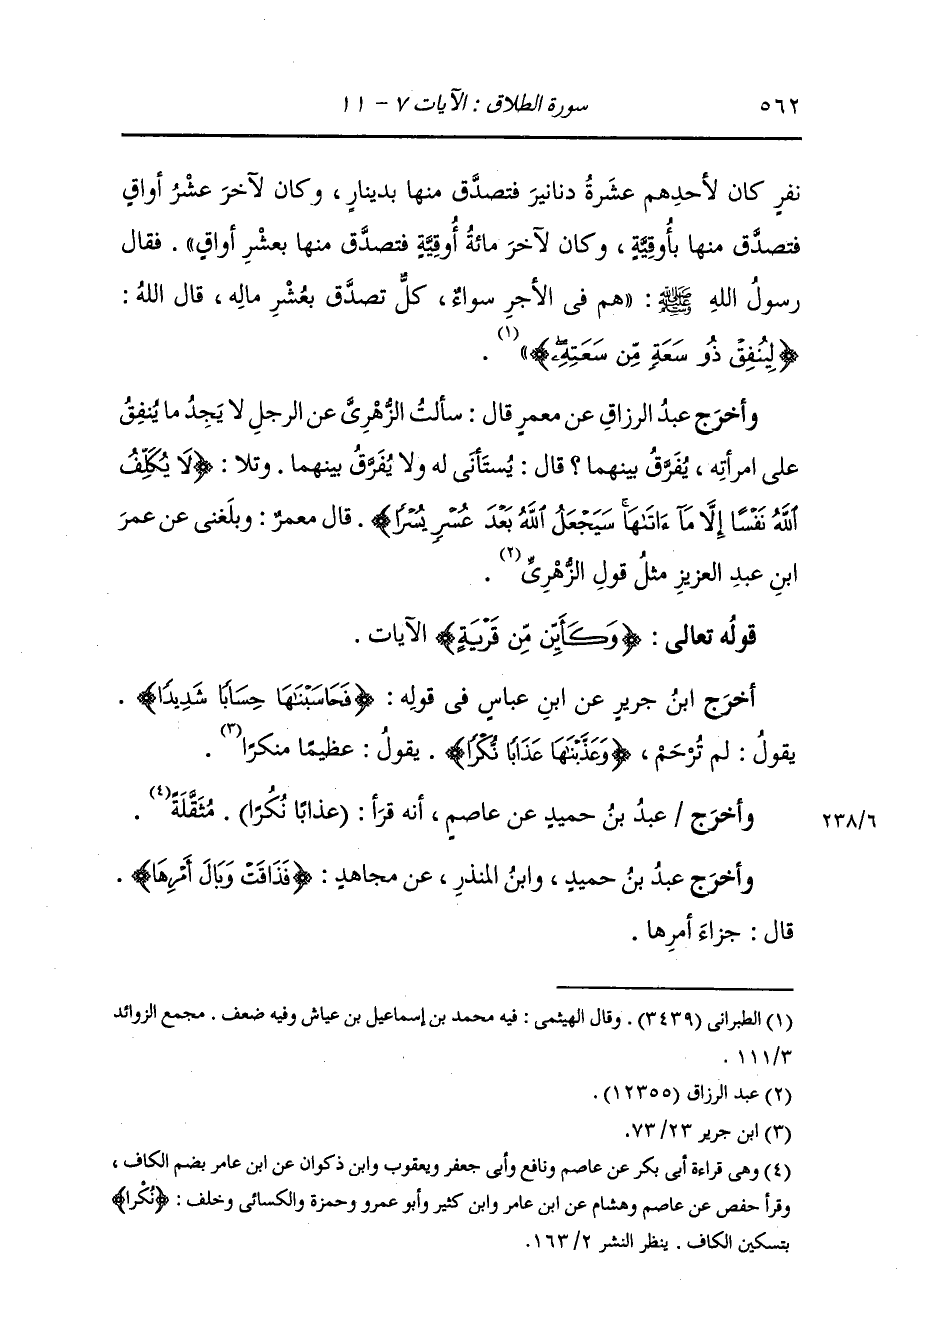 ٥٦٢ سورة الطلاق : الآيات ٧ - ١١
نفرٍ كان لأحدِهم عشَرةُ دنانيرَ فتصدَّق منها بدينارٍ ، وكان لآخرَ عشْرُ أواقٍ
فتصدَّق منها بأُوقِيَّةٍ ، وكان لآخرَ مائةُ أُوقِيَّةٍ فتصدَّق منها بعشْرِ أواقٍ» . فقال
رسولُ اللهِ ﷺ : «هم فى الأجرِ سواءٌ ، كلٌّ تصدَّق بعُشْرِ مالِه ، قال اللهُ :
﴿لِيُنفِقْ ذُو سَعَةٍ مِّن سَعَتِهِۦۖ﴾»(١) .
وأخرَج عبدُ الرزاقِ عن معمرٍ قال : سألتُ الزُّهْرِىَّ عن الرجلِ لا يَجِدُ ما يُنفِقُ
على امرأتِه ، يُفَرَّقُ بينهما ؟ قال : يُستَأنَى له ولا يُفَرَّقُ بينهما . وتلا : ﴿لَا يُكَلِّفُ
ٱللَّهُ نَفْسًا إِلَّا مَآ ءَاتَىٰهَاۚ سَيَجْعَلُ ٱللَّهُ بَعْدَ عُسْرٍ يُسْرًا﴾ . قال معمرٌ : وبلَغنى عن عمرَ
ابنِ عبدِ العزيزِ مثلُ قولِ الزُّهْرِىِّ(٢) .
قولُه تعالى : ﴿وَكَأَيِّن مِّن قَرْيَةٍ﴾ الآيات .
أخرَج ابنُ جريرٍ عن ابنِ عباسٍ فى قولِه : ﴿فَحَاسَبْنَٰهَا حِسَابًا شَدِيدًا﴾ .
يقولُ : لم تُرْحَمْ ، ﴿وَعَذَّبْنَٰهَا عَذَابًا نُّكْرًا﴾ . يقولُ : عظيمًا منكرًا(٣) .
وأخرَج / عبدُ بنُ حميدٍ عن عاصمٍ ، أنه قرَأ : (عذابًا نُكُرًا) . مُثَقَّلَةً(٤) . ٢٣٨/٦
وأخرَج عبدُ بنُ حميدٍ ، وابنُ المنذرِ ، عن مجاهدٍ : ﴿فَذَاقَتْ وَبَالَ أَمْرِهَا﴾ .
قال : جزاءَ أمرِها .
(١) الطبرانى (٣٤٣٩) . وقال الهيثمى : فيه محمد بن إسماعيل بن عياش وفيه ضعف . مجمع الزوائد
٣/ ١١١ .
(٢) عبد الرزاق (١٢٣٥٥) .
(٣) ابن جرير ٢٣/ ٧٣.
(٤) وهى قراءة أبى بكر عن عاصم ونافع وأبى جعفر ويعقوب وابن ذكوان عن ابن عامر بضم الكاف ،
وقرأ حفص عن عاصم وهشام عن ابن عامر وابن كثير وأبو عمرو وحمزة والكسائى وخلف : ﴿نُكْرا﴾
بتسكين الكاف . ينظر النشر ٢/ ١٦٣.